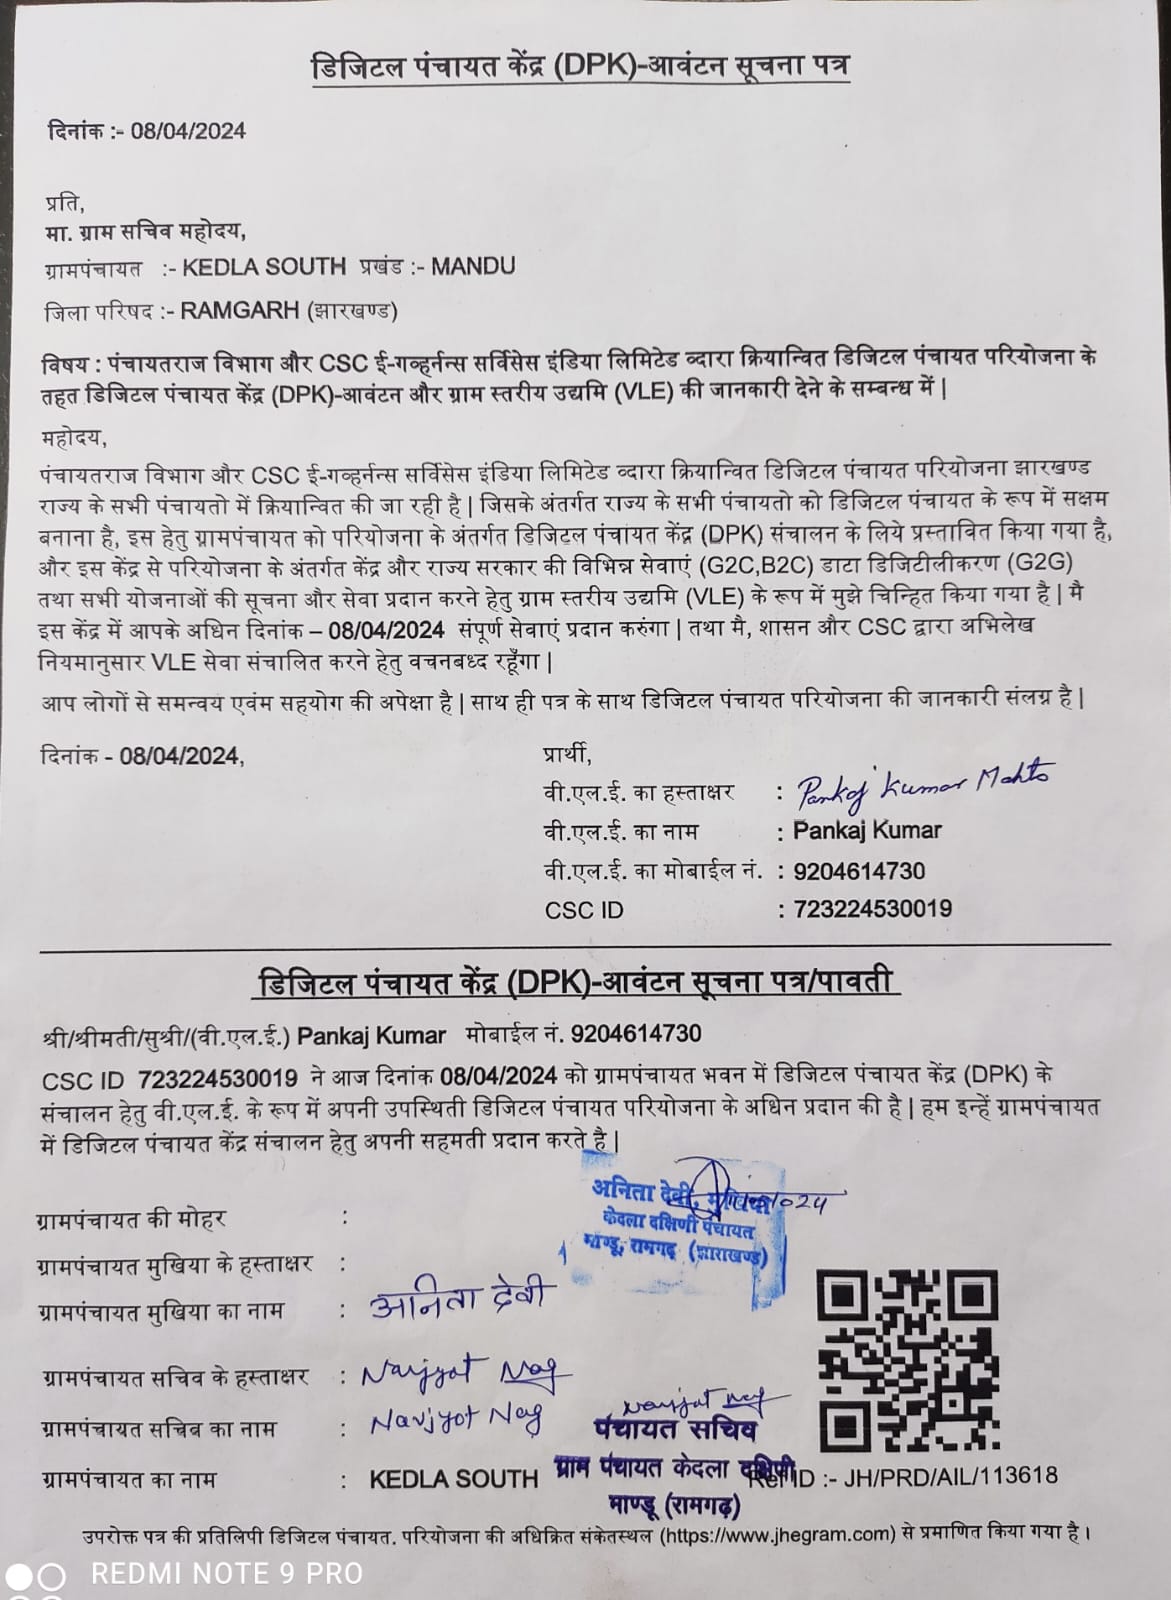 डिजिटल पंचायत केंद्र (DPK)-आवंटन सूचना पत्र
दिनांक :- 08/04/2024
प्रति,
मा. ग्राम सचिव महोदय,
ग्रामपंचायत :- KEDLA SOUTH प्रखंड :- MANDU
जिला परिषद :- RAMGARH (झारखण्ड)
विषय : पंचायतराज विभाग और CSC ई-गव्हर्नन्स सर्विसेस इंडिया लिमिटेड व्दारा क्रियान्वित डिजिटल पंचायत परियोजना के
तहत डिजिटल पंचायत केंद्र (DPK)-आवंटन और ग्राम स्तरीय उद्यमि (VLE) की जानकारी देने के सम्बन्ध में |
महोदय,
पंचायतराज विभाग और CSC ई-गव्हर्नन्स सर्विसेस इंडिया लिमिटेड व्दारा क्रियान्वित डिजिटल पंचायत परियोजना झारखण्ड
राज्य के सभी पंचायतो में क्रियान्वित की जा रही है | जिसके अंतर्गत राज्य के सभी पंचायतो को डिजिटल पंचायत के रूप में सक्षम
बनाना है, इस हेतु ग्रामपंचायत को परियोजना के अंतर्गत डिजिटल पंचायत केंद्र (DPK) संचालन के लिये प्रस्तावित किया गया है,
और इस केंद्र से परियोजना के अंतर्गत केंद्र और राज्य सरकार की विभिन्न सेवाएं (G2C,B2C) डाटा डिजिटीलीकरण (G2G)
तथा सभी योजनाओं की सूचना और सेवा प्रदान करने हेतु ग्राम स्तरीय उद्यमि (VLE) के रूप में मुझे चिन्हित किया गया है | मै
इस केंद्र में आपके अधिन दिनांक – 08/04/2024 संपूर्ण सेवाएं प्रदान करुंगा | तथा मै, शासन और CSC द्वारा अभिलेख
नियमानुसार VLE सेवा संचालित करने हेतु वचनबध्द रहूँगा |
आप लोगों से समन्वय एवंम सहयोग की अपेक्षा है | साथ ही पत्र के साथ डिजिटल पंचायत परियोजना की जानकारी संलग्न है |
दिनांक - 08/04/2024,
प्रार्थी,
वी.एल.ई. का हस्ताक्षर : Pankaj Kumar Mahto
वी.एल.ई. का नाम : Pankaj Kumar
वी.एल.ई. का मोबाईल नं. : 9204614730
CSC ID : 723224530019
डिजिटल पंचायत केंद्र (DPK)-आवंटन सूचना पत्र/पावती
श्री/श्रीमती/सुश्री/(वी.एल.ई.) Pankaj Kumar मोबाईल नं. 9204614730
CSC ID 723224530019 ने आज दिनांक 08/04/2024 को ग्रामपंचायत भवन में डिजिटल पंचायत केंद्र (DPK) के
संचालन हेतु वी.एल.ई. के रूप में अपनी उपस्थिती डिजिटल पंचायत परियोजना के अधिन प्रदान की है | हम इन्हें ग्रामपंचायत
में डिजिटल पंचायत केंद्र संचालन हेतु अपनी सहमती प्रदान करते है |
अनिता देवी, मुखिया
केदला दक्षिणी पंचायत
माण्डू, रामगढ़ (झाराखण्ड)
ग्रामपंचायत की मोहर :
ग्रामपंचायत मुखिया के हस्ताक्षर :
ग्रामपंचायत मुखिया का नाम : अनिता देवी
ग्रामपंचायत सचिव के हस्ताक्षर : Navjyot Nag
Navjyot Nag
ग्रामपंचायत सचिव का नाम : Navjyot Nag
पंचायत सचिव
ग्राम पंचायत केदला दक्षिणी
माण्डू (रामगढ़)
ग्रामपंचायत का नाम : KEDLA SOUTH
Ref ID :- JH/PRD/AIL/113618
उपरोक्त पत्र की प्रतिलिपी डिजिटल पंचायत. परियोजना की अधिक्रित संकेतस्थल (https://www.jhegram.com) से प्रमाणित किया गया है।
REDMI NOTE 9 PRO